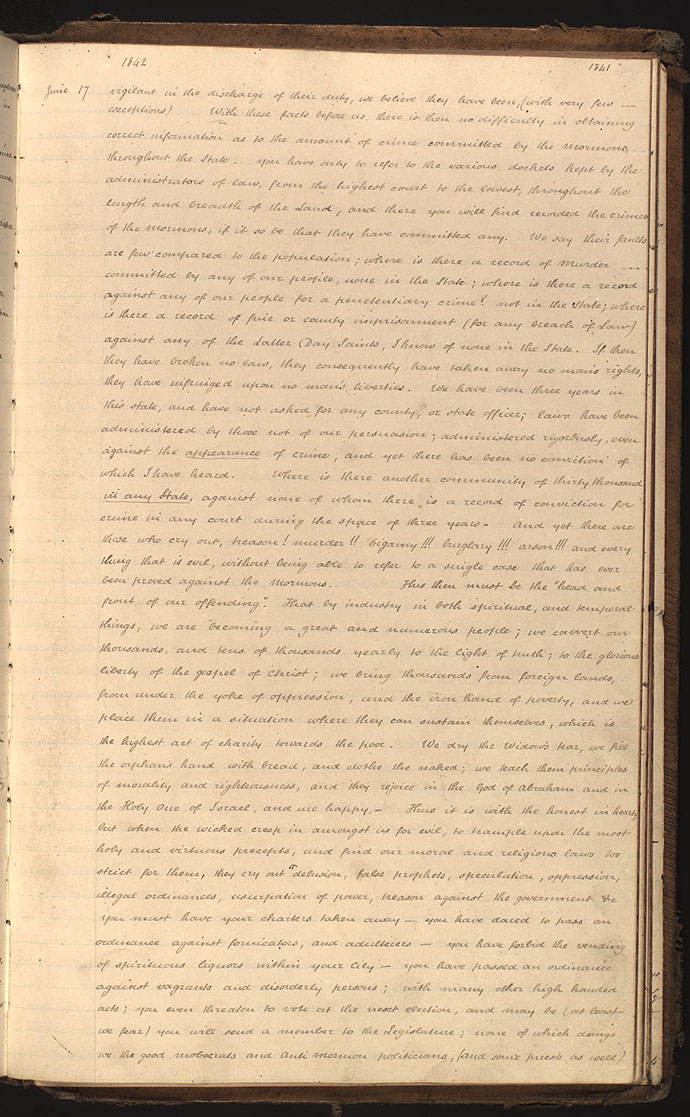 1842
1341
June 17 vigilant in the discharge of their duty, we believe they have been, (with very few —
exceptions) With these facts before us, there is then no difficulty in obtaining
correct information as to the amount of crime committed by the mormons,
throughout the State. You have only to refer to the various dockets kept by the
administrators of law, from the highest court to the lowest, throughout the
length and breadth of the Land, and there you will find recorded the crimes
of the mormons, if it so be that they have committed any. We say their faults
are few compared to the population; where is there a record of Murder
committed by any of our people, none in the State; where is there a record
against any of our people for a penetentiary crime? not in the State; where
is there a record of fine or county imprisonment (for any breach of Law)
against any of the Latter Day Saints, I know of none in the State. If then
they have broken no law, they consequently have taken away no man's rights,
they have infringed upon no man's liberties. We have been three years in
this state, and have not asked for any county, or state officer; laws have been
administered by those not of our persuasion; administered rigorously, even
against the appearance of crime, and yet there has been no conviction of
which I have heard. Where is there another community of thirty thousand
in any State, against none of whom there is a record of conviction for
crime in any court during the space of three years - And yet there are
those who cry out, treason! murder!! bigamy!!! burglary!!! arson!!! and every
thing that is evil, without being able to refer to a single case that has ever
been proved against the Mormons. This then must be the "head and
front of our offending". That by industry in both spiritual, and temporal
things, we are becoming a great and numerous people; we convert our
thousands, and tens of thousands yearly to the light of truth; to the glorious
liberty of the gospel of Christ; we bring thousands from foreign lands,
from under the yoke of oppression, and the iron hand of poverty, and we
place them in a situation where they can sustain themselves, which is
the highest act of charity towards the poor. We dry the Widow's tear, we fill
the orphan's hand with bread, and clothe the naked; we teach them principles
of morality and righteousness, and they rejoice in the God of Abraham and in
the Holy One of Israel, and are happy. — Thus it is with the honest in heart,
but when the wicked creep in amongst us for evil, to trample upon the most
holy and virtuous precepts, and find our moral and religious laws too
strict for them, they cry out "delusion, false prophets, speculation, oppression,
illegal ordinances, usurpation of power, treason against the government &c
You must have your charters taken away — you have dared to pass an
ordinance against fornicators, and adulterers — you have forbid the vending
of spirituous liquors within your City — you have passed an ordinance
against vagrants and disorderly persons; with many other high handed
acts; you even threaten to vote at the next election, and may be (at least
we fear) you will send a member to the Legislature; none of which doings
we the good mobocrats and Anti Mormon politicians, (and some priests as well)